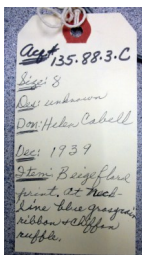 Acq#
135.88.3.C
Size: 8
Des: unknown
Don: Helen Cabell
Dec: 1939
Item: Beige floral
print. At neck-
line blue grosgrain
ribbon & chiffon
ruffle.